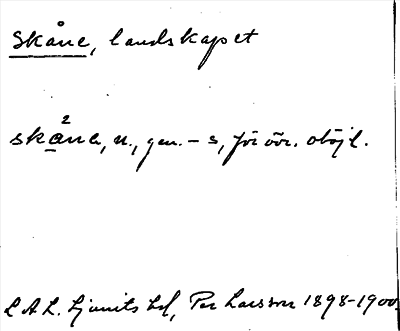 Skåne, landskapet
skåne, n., gen. - s, för övr. oböjl.
L A. L. Ljunits hd, Per Larsson 1898-1900.